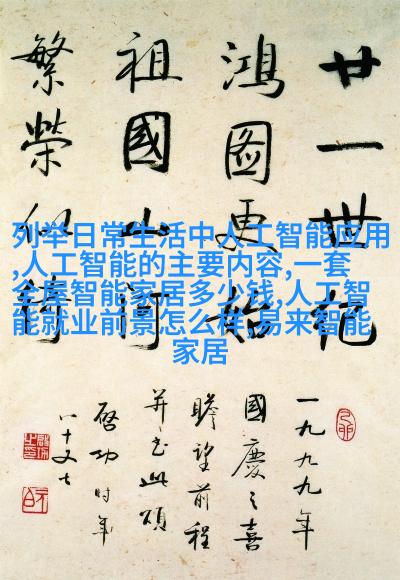 廿一世紀
鴻圖更始
祖國山河
繁榮似錦
列举日常生活中人工智能应用
,人工智能的主要内容,一套
全屋智能家居多少钱,人工智
能就业前景怎么样,易来智能
家居
一九九九年
國慶之喜
瞻望前程
并书此頌
啓功时年
八十又七